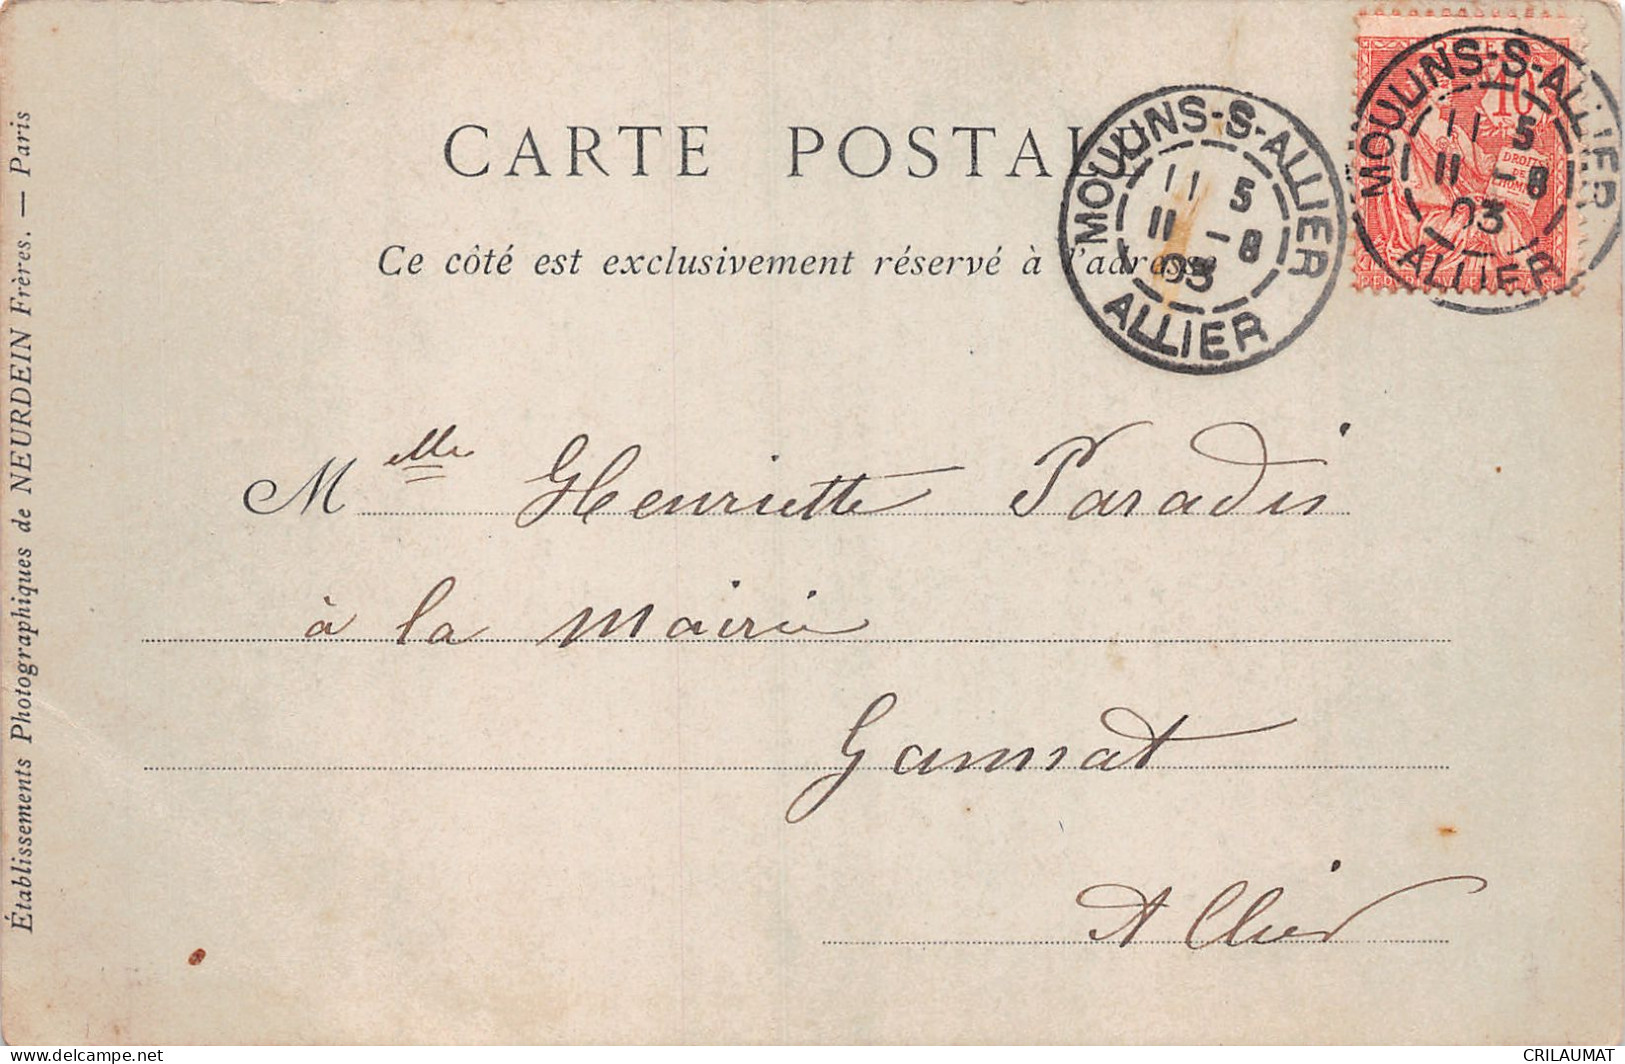 CARTE POSTALE
Ce côté est exclusivement réservé à l'adresse
MOULINS-S-ALLIER
11 5
11 -8
03
ALLIER
10
DROITS
DE
L'HOMME
MOULINS-S-ALLIER
11 5
11 -8
03
ALLIER
Mlle Henriette Paradis
à la Mairie
Gannat
Allier
Établissements Photographiques de NEURDEIN Frères. — Paris
www.delcampe.net
CRILAUMAT